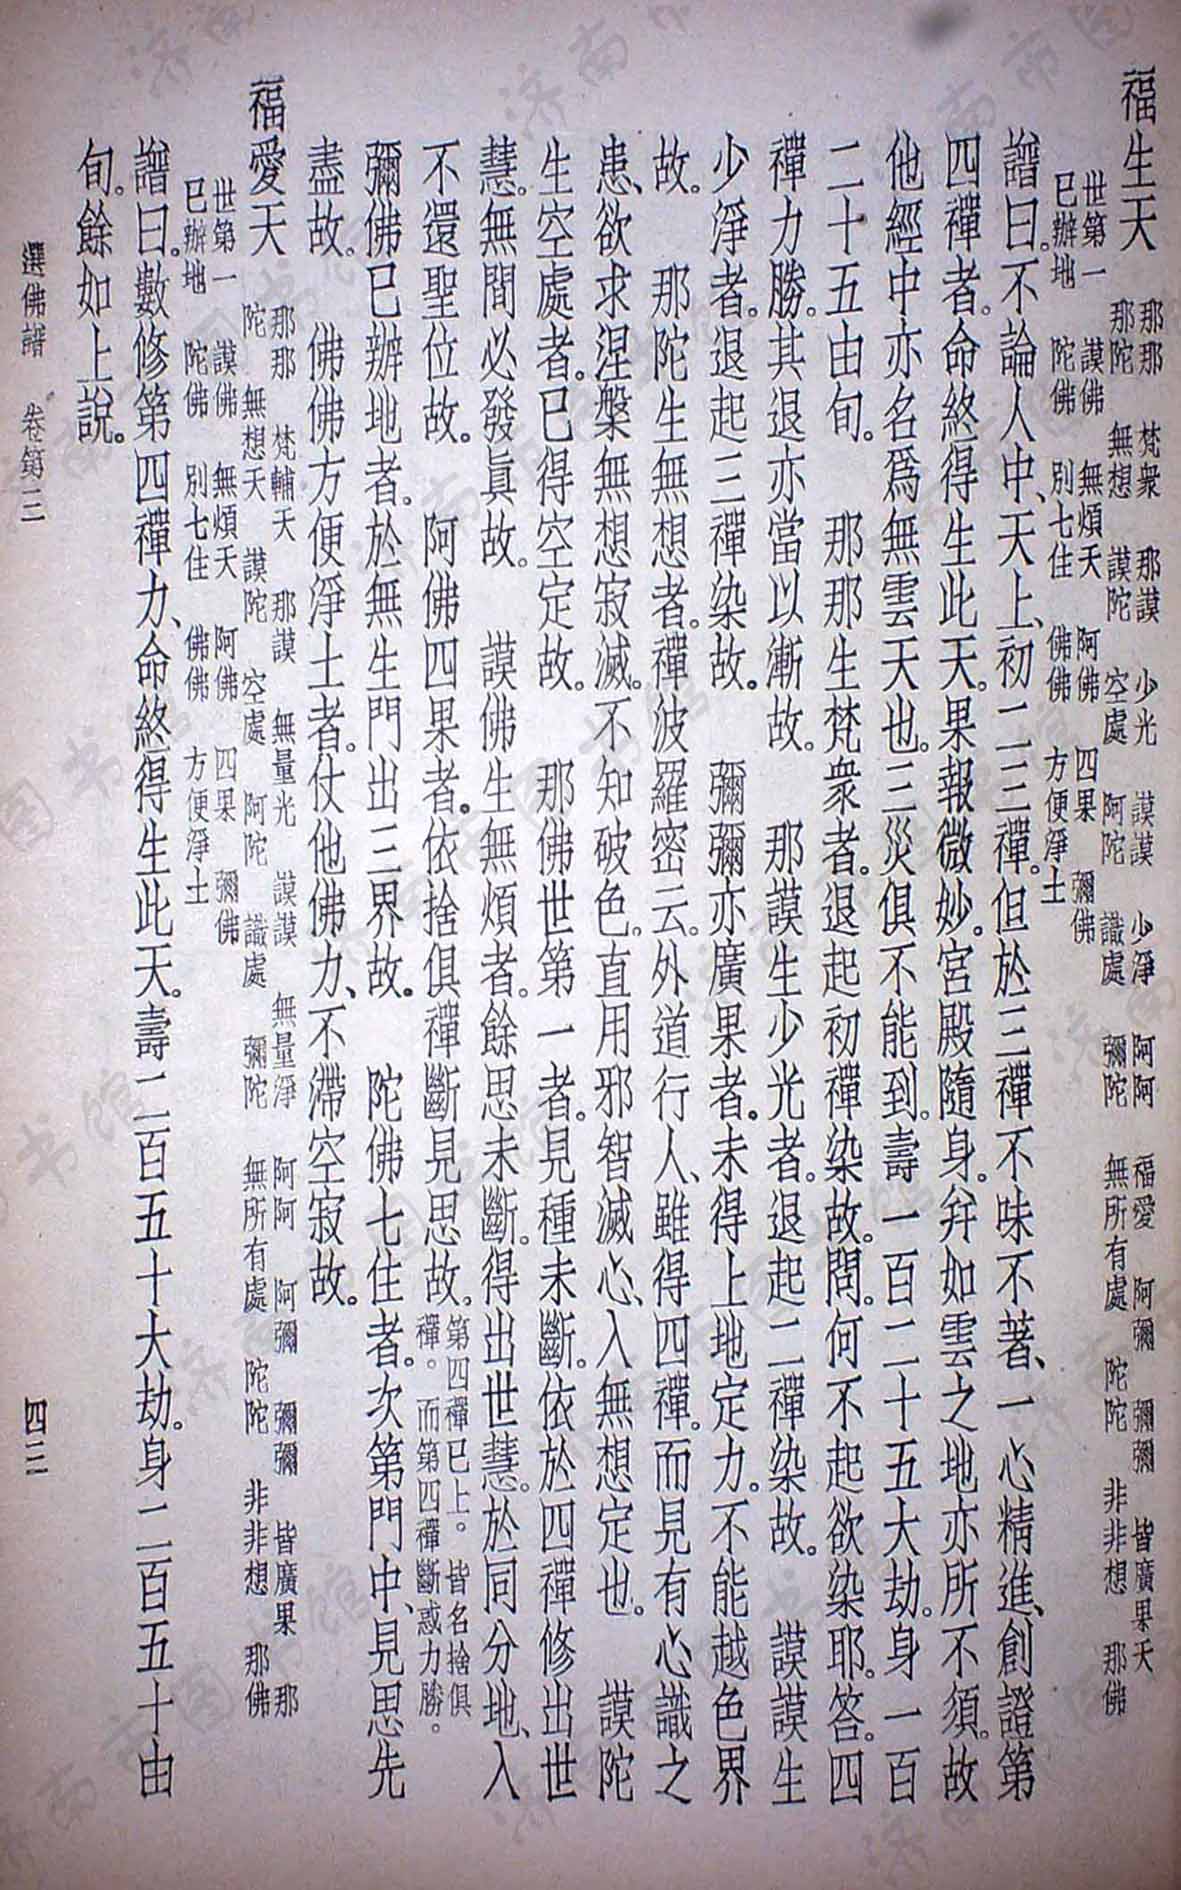 福生天
那那　梵衆　那謨　少光　謨謨　少淨　阿阿　福愛　阿彌　彌彌　皆廣果天
那陀　無想　謨陀　空處　阿陀　識處　彌陀　無所有處　陀陀　非非想　那佛
世第一　謨佛　無煩天　阿佛　四果　彌佛
已辦地　陀佛　別七住　佛佛　方便淨土
譜曰。不論人中、天上、初二三禪。但於三禪不味不著、一心精進、創證第
四禪者。命終得生此天。果報微妙。宮殿隨身。弁如雲之地亦所不須。故
他經中亦名爲無雲天也。三災俱不能到。壽一百二十五大劫。身一百
二十五由旬。　那那生梵衆者。退起初禪染故。問。何不起欲染耶。答。四
禪力勝。其退亦當以漸故。　那謨生少光者。退起二禪染故。　謨謨生
少淨者。退起三禪染故。　彌彌亦廣果者。未得上地定力。不能越色界
故。　那陀生無想者。禪波羅密云。外道行人、雖得四禪。而見有心識之
患、欲求涅槃無想寂滅。不知破色。直用邪智滅心、入無想定也。　謨陀
生空處者。已得空定故。　那佛世第一者。見種未斷。依於四禪修出世
慧。無間必發眞故。　謨佛生無煩者。餘思未斷。得出世慧。於同分地、入
不還聖位故。　阿佛四果者。依捨俱禪斷見思故。第四禪已上。皆名捨俱
禪。而第四禪斷惑力勝。
彌佛已辦地者。於無生門出三界故。　陀佛七住者。次第門中、見思先
盡故。　佛佛方便淨土者。仗他佛力、不滯空寂故。
福愛天
那那　梵輔天　那謨　無量光　謨謨　無量淨　阿阿　阿彌　彌彌　皆廣果　那
陀　無想天　謨陀　空處　阿陀　識處　彌陀　無所有處　陀陀　非非想　那佛
世第一　謨佛　無煩天　阿佛　四果　彌佛
已辦地　陀佛　別七住　佛佛　方便淨土
譜曰。數修第四禪力、命終得生此天。壽二百五十大劫。身二百五十由
旬。餘如上說。
選佛譜　卷第三　四三